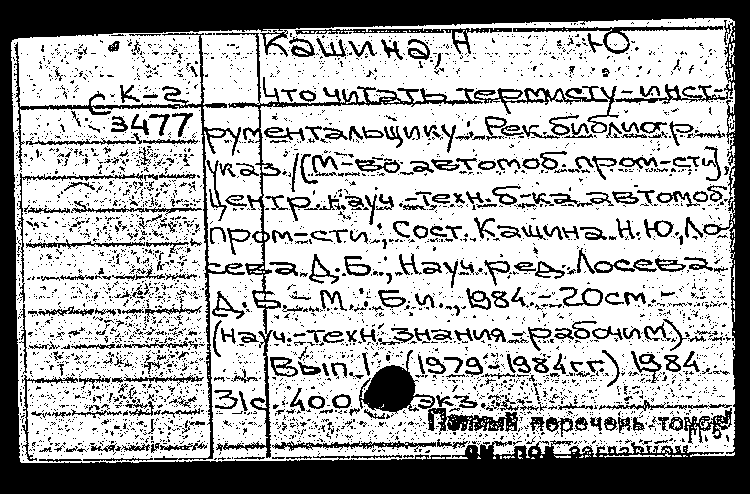 Кашина, Н Ю.
Что читать термисту-инст-
С К-2
3477
рументальщику : Рек. библиогр.
указ. / [М-во автомоб. пром-сти],
Центр. науч.-техн. б-ка автомоб.
пром-сти ; Сост. Кашина Н.Ю., Ло-
сева Д.Б. ; Науч. ред. Лосева
Д.Б. – М. : Б.и., 1984. – 20см. –
(науч.-техн. знания – рабочим).
Вып. 1 : (1979-1984гг.) 1984
31с. 400 экз.
Полный перечень томов
см. под заглавием